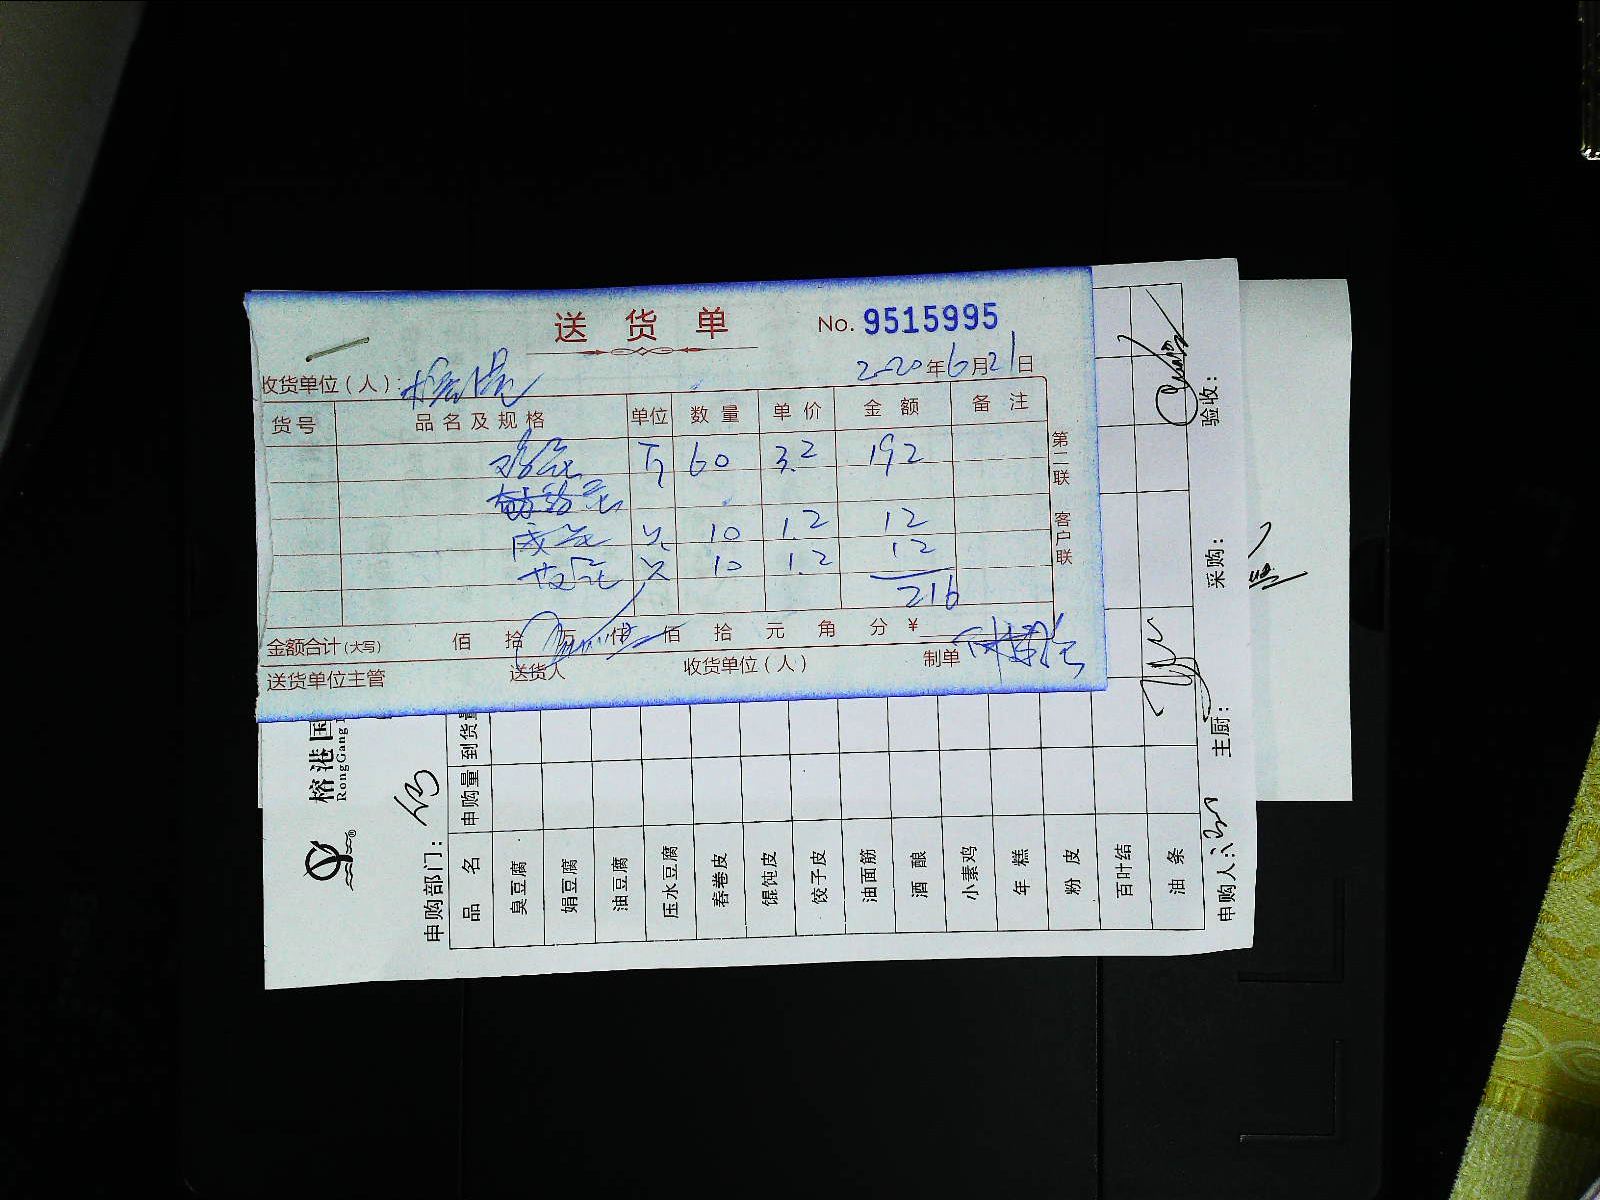 送货单 No. 9515995
2020年6月21日
收货单位(人): 榕港
货号 品名及规格 单位 数量 单价 金额 备注
鸡蛋 斤 60 3.2 192
咸蛋 只 10 1.2 12
皮蛋 只 10 1.2 12
216
金额合计(大写) 佰 拾 万 仟 佰 拾 元 角 分 ¥
送货单位主管 送货人 收货单位(人) 制单
第二联 客户联
榕港国
RongGang
申购部门:
品名 申购量 到货量
臭豆腐
娟豆腐
油豆腐
压水豆腐
春卷皮
馄饨皮
饺子皮
油面筋
酒酿
小素鸡
年糕
粉皮
百叶结
油条
申购人: 主厨: 采购: 验收: